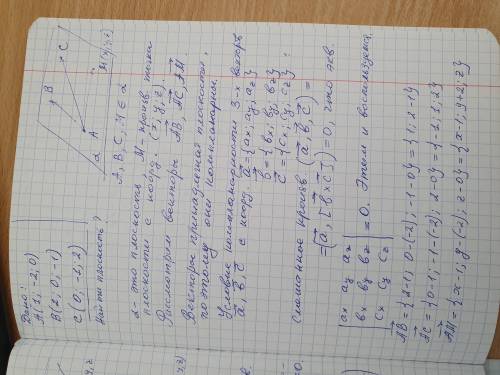 Дано:
A(1, -2, 0)
B(2, 0, -1)
C(0, -1, 2)
Найти плоскость?
B
C
A
α
M(x, y, z)
A, B, C, M ∈ α
α-это плоскость, M - произв. точка
плоскости с коорд. (x; y; z).
Рассмотрим векторы AB, AC, AM.
Векторы принадлежат плоскости,
поэтому они компланарны.
Условие компланарности 3-х векторов
a, b, c с коорд. a = {ax; ay; az}
b = {bx; by; bz}
c = {cx; cy; cz} :
Смешанное произв. (a, b, c) =
= (a, [b × c]) = 0, это экв.
| ax ay az |
| bx by bz | = 0. Этим и воспользуемся.
| cx cy cz |
AB = {2-1; 0-(-2); -1-0} = {1; 2; -1}
AC = {0-1; -1-(-2); 2-0} = {-1; 1; 2}
AM = {x-1; y-(-2); z-0} = {x-1; y+2; z}